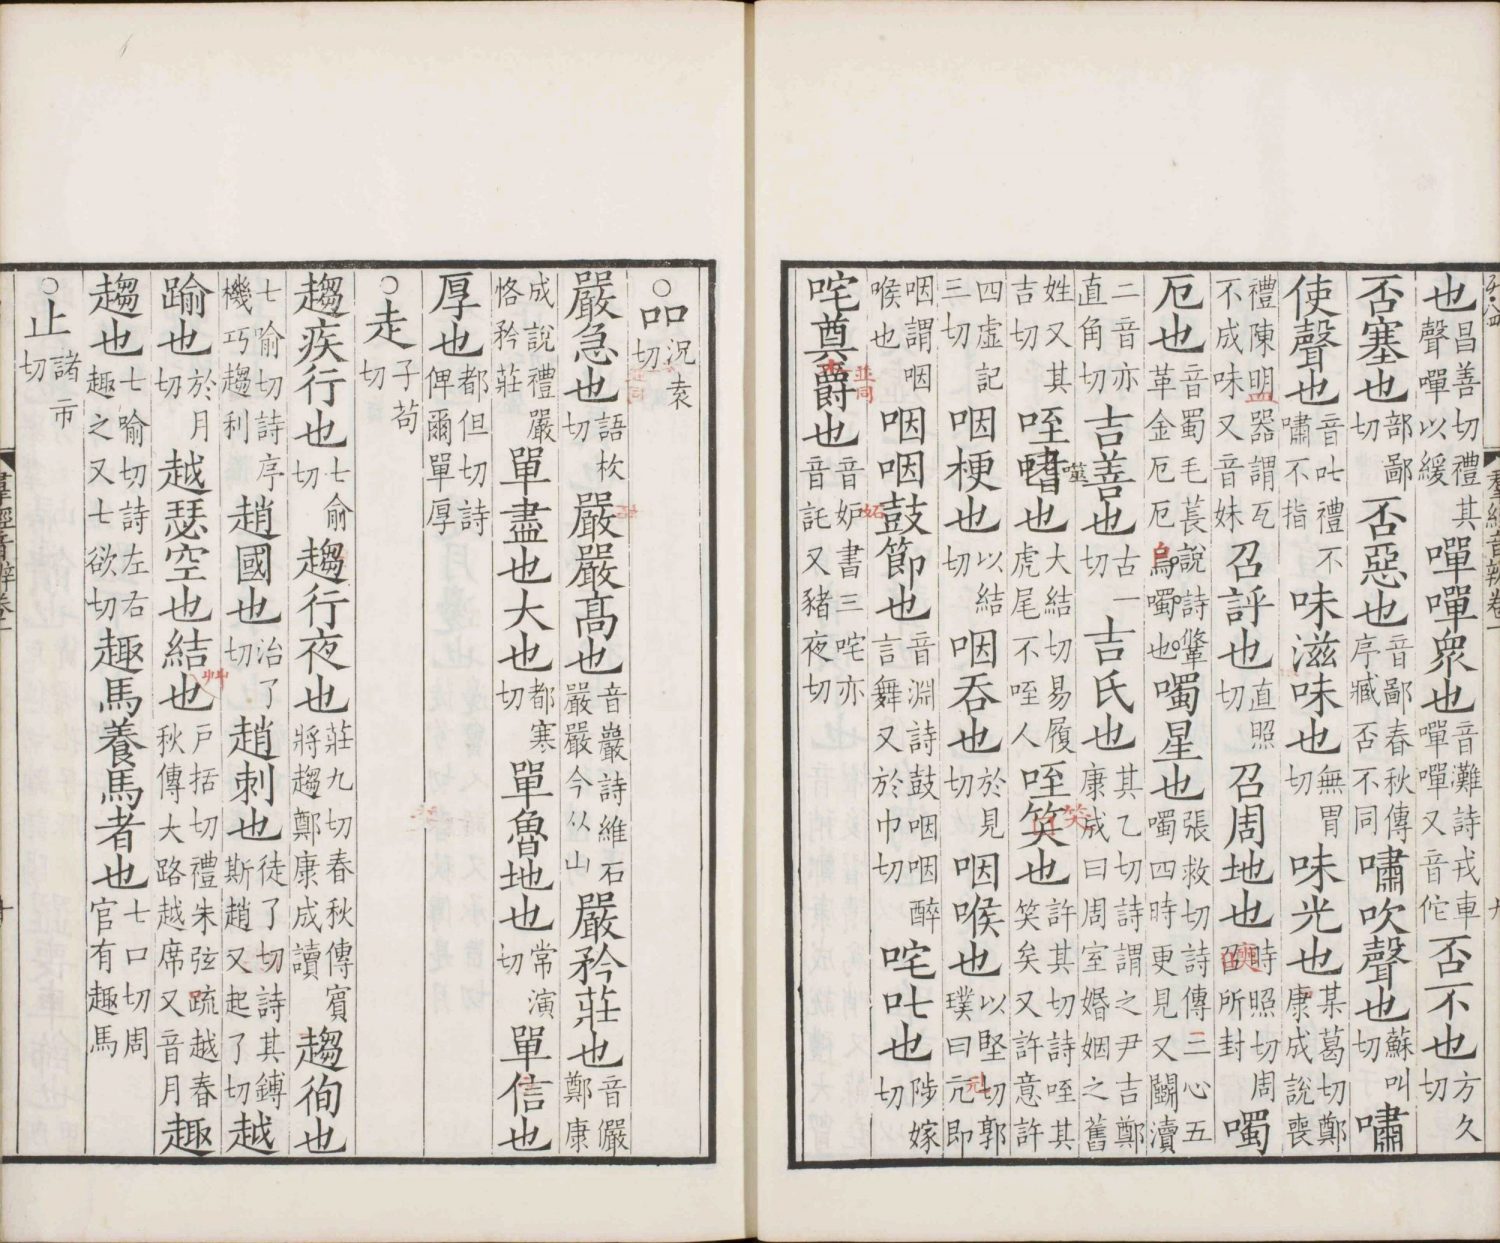 也昌善切禮其聲嘽以緩嘽嘽衆也音灘詩戎車嘽嘽又音佗否不也方久切
否塞也部鄙切否惡也音鄙春秋傳序臧否不同嘯吹聲也蘇叫切嘯
使聲也音叱禮不嘯不指味滋味也無胃切味光也某葛切鄭康成說喪
禮陳明器謂瓦不成味又音妹召𧦝也直照切召周地也時照切周召所封噣
厄也音蜀毛萇說詩鞗革金厄厄烏噣也噣星也張救切詩傳三心五噣四時更見又鬭瀆
二音亦直角切吉善也古一切吉氏也其乙切詩謂之尹吉鄭康成曰周室婚姻之舊
姓又其吉切咥嗜也大結切易履虎尾不咥人咥笑也許其切詩咥其笑矣又許意許
四虛記三切咽梗也以結切咽吞也於見切咽喉也以堅切郭璞曰元即
咽謂咽喉也咽咽鼓節也音淵詩鼓咽咽醉言舞又於巾切咤叱也陟嫁切
咤奠爵也音妒書三咤亦音託又豬夜切
羣經音辨卷一 九
○吅況袁切
嚴急也語杴切嚴嚴高也音巖詩維石嚴嚴今从山嚴矜莊也音儼鄭康
成說禮嚴恪矜莊單盡也大也都寒切單魯地也常演切單信也
厚也都但切詩俾爾單厚
○走子苟切
趨疾行也七俞切趨行夜也莊九切春秋傳賓將趨鄭康成讀趨徇也
七喻切詩序機巧趨利趙國也治了切趙刺也徒了切詩其鎛斯趙又起了切越
踰也於月切越瑟空也結也戶括切禮朱弦疏越春秋傳大路越席又音月趣
趨也七喻切詩左右趣之又七欲切趣馬養馬者也七口切周官有趣馬
○止諸市切
羣經音辨卷一 十